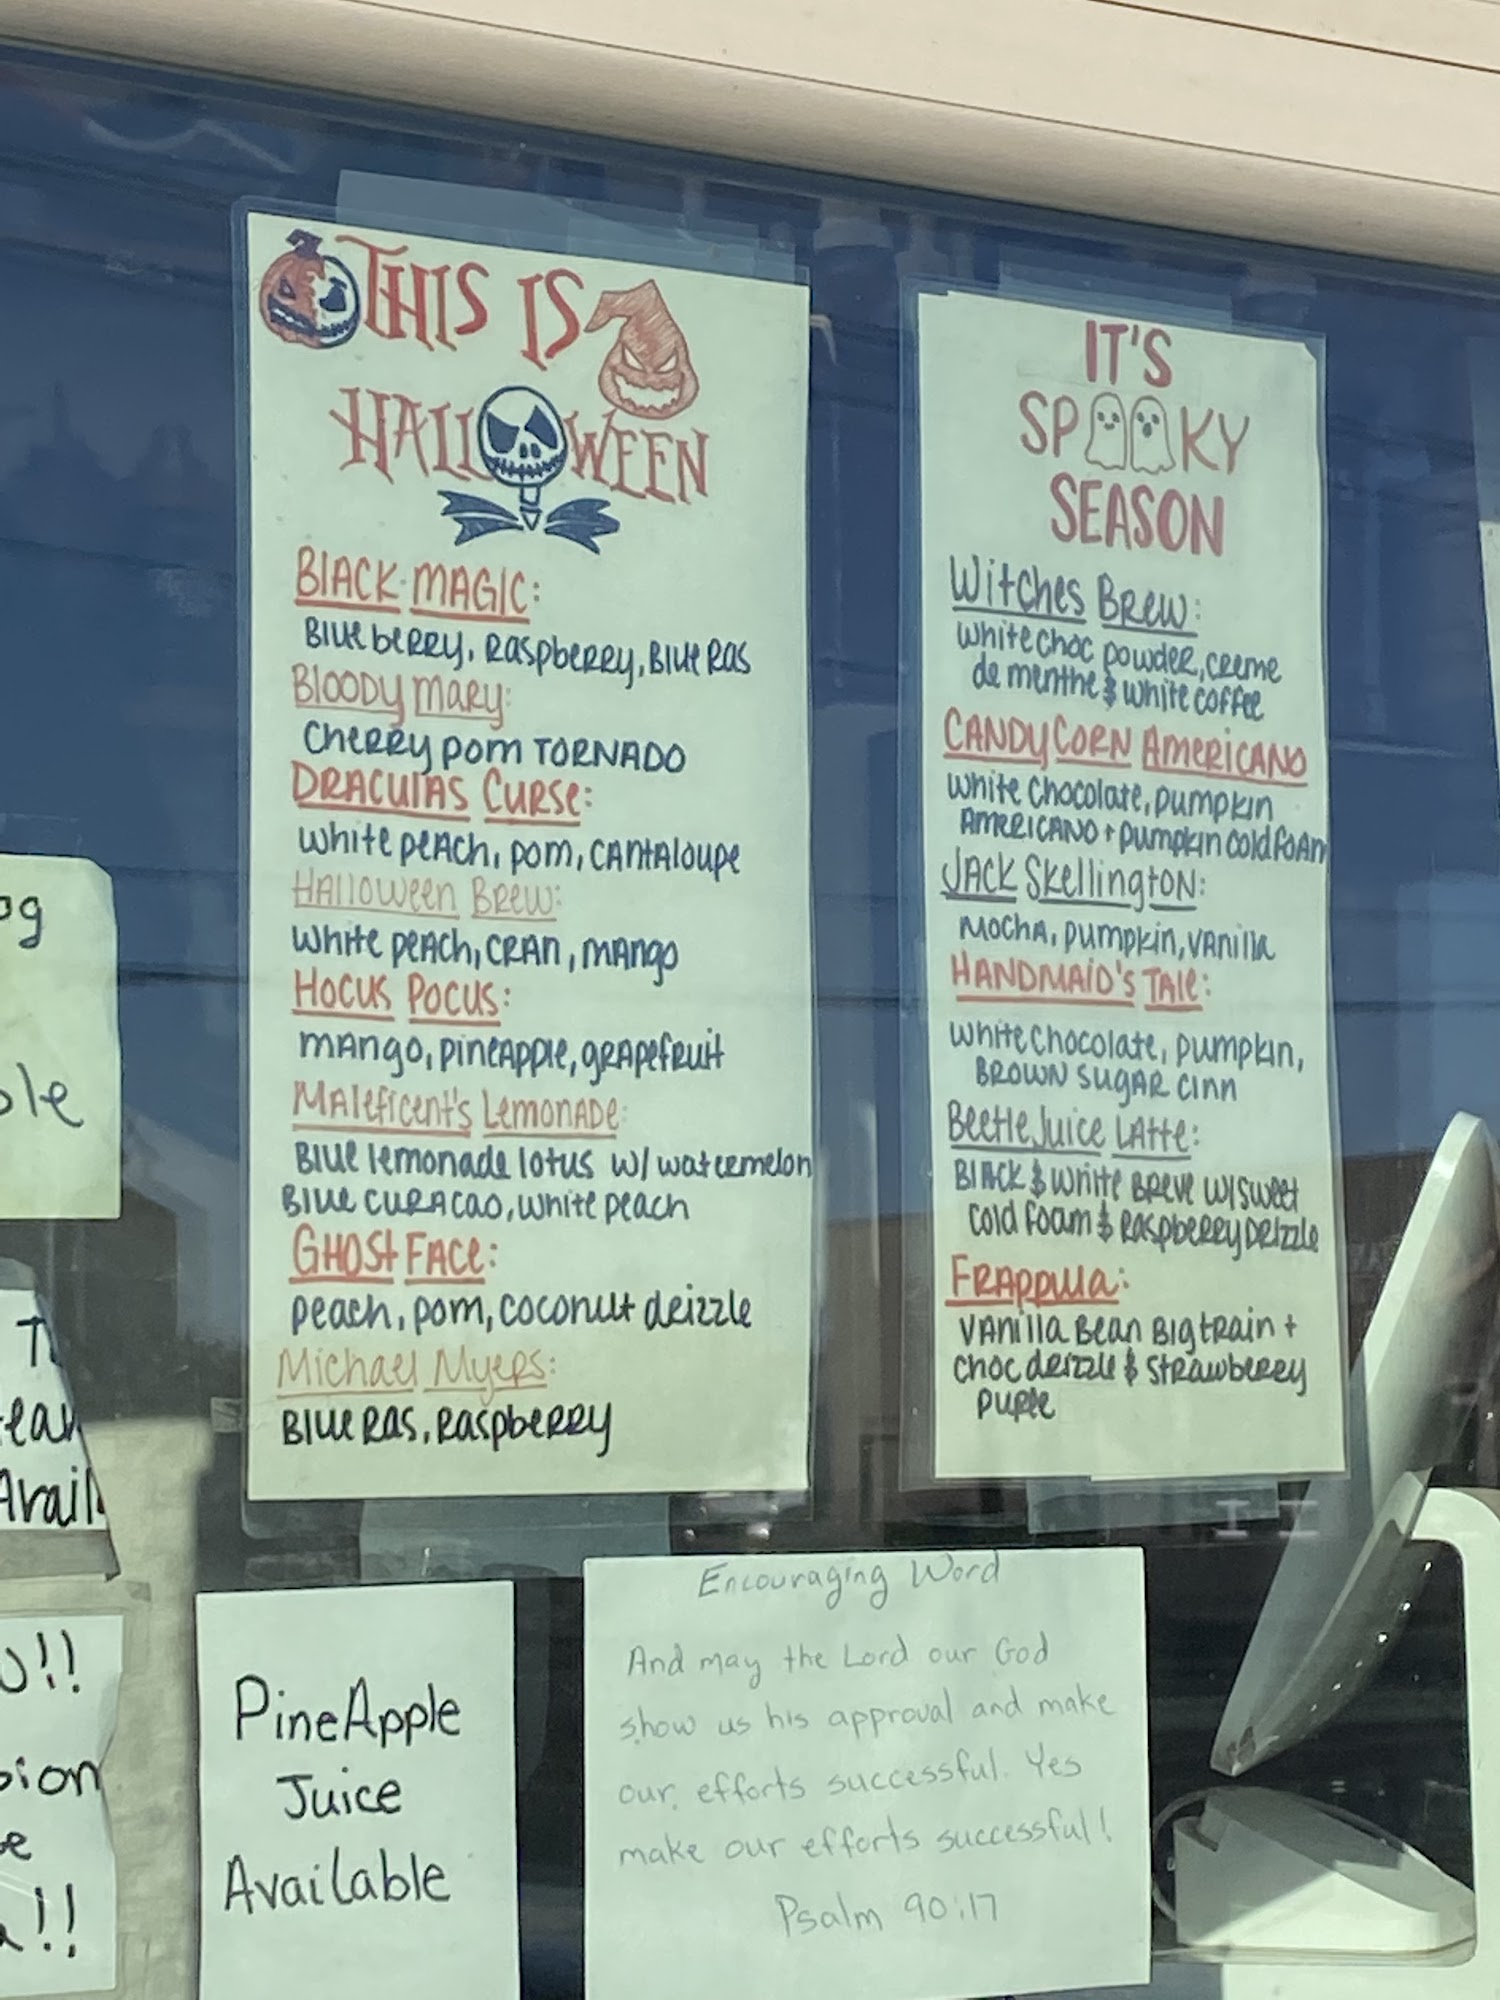 THIS IS
HALLOWEEN
BLACK MAGIC:
Blueberry, Raspberry, Blue Ras
Bloody Mary:
Cherry pom TORNADO
DRACULAS CURSE:
white peach, pom, cantaloupe
Halloween Brew:
white peach, cran, mango
Hocus Pocus:
mango, pineapple, grapefruit
Maleficent's Lemonade:
Blue lemonade lotus w/ watermelon
Blue curacao, white peach
Ghost Face:
peach, pom, coconut drizzle
Michael Myers:
Blue Ras, Raspberry
IT'S
SPOOKY
SEASON
Witches Brew:
white choc powder, creme
de menthe & white coffee
Candy Corn Americano
White Chocolate, pumpkin
Americano + pumpkin cold foam
Jack Skellington:
Mocha, pumpkin, vanilla
Handmaid's Tale:
white chocolate, pumpkin,
Brown sugar cinn
BeetleJuice Latte:
Black & white Breve w/ sweet
cold foam & Raspberry Drizzle
Frappula:
Vanilla Bean Bigtrain +
choc drizzle & strawberry
puree
og
ole
Avail
U!!
!!
PineApple
Juice
Available
Encouraging Word
And may the Lord our God
show us his approval and make
our efforts successful. Yes
make our efforts successful!
Psalm 90:17